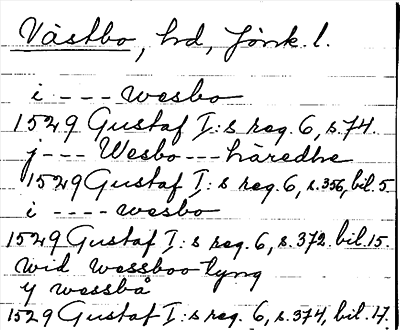 Västbo, hd, Jönk. l.
i - - - wesbo
1529 Gustaf I:s reg. 6, s. 74.
j - - - Wesbo - - - häredhe
1529 Gustaf I:s reg. 6, s. 356, bil. 5
i - - - - wesbo
1529 Gustaf I:s reg. 6, s. 372. bil. 15.
wid wessboo lyng
y wessbå
1529 Gustaf I:s reg. 6, s. 374, bil. 17.